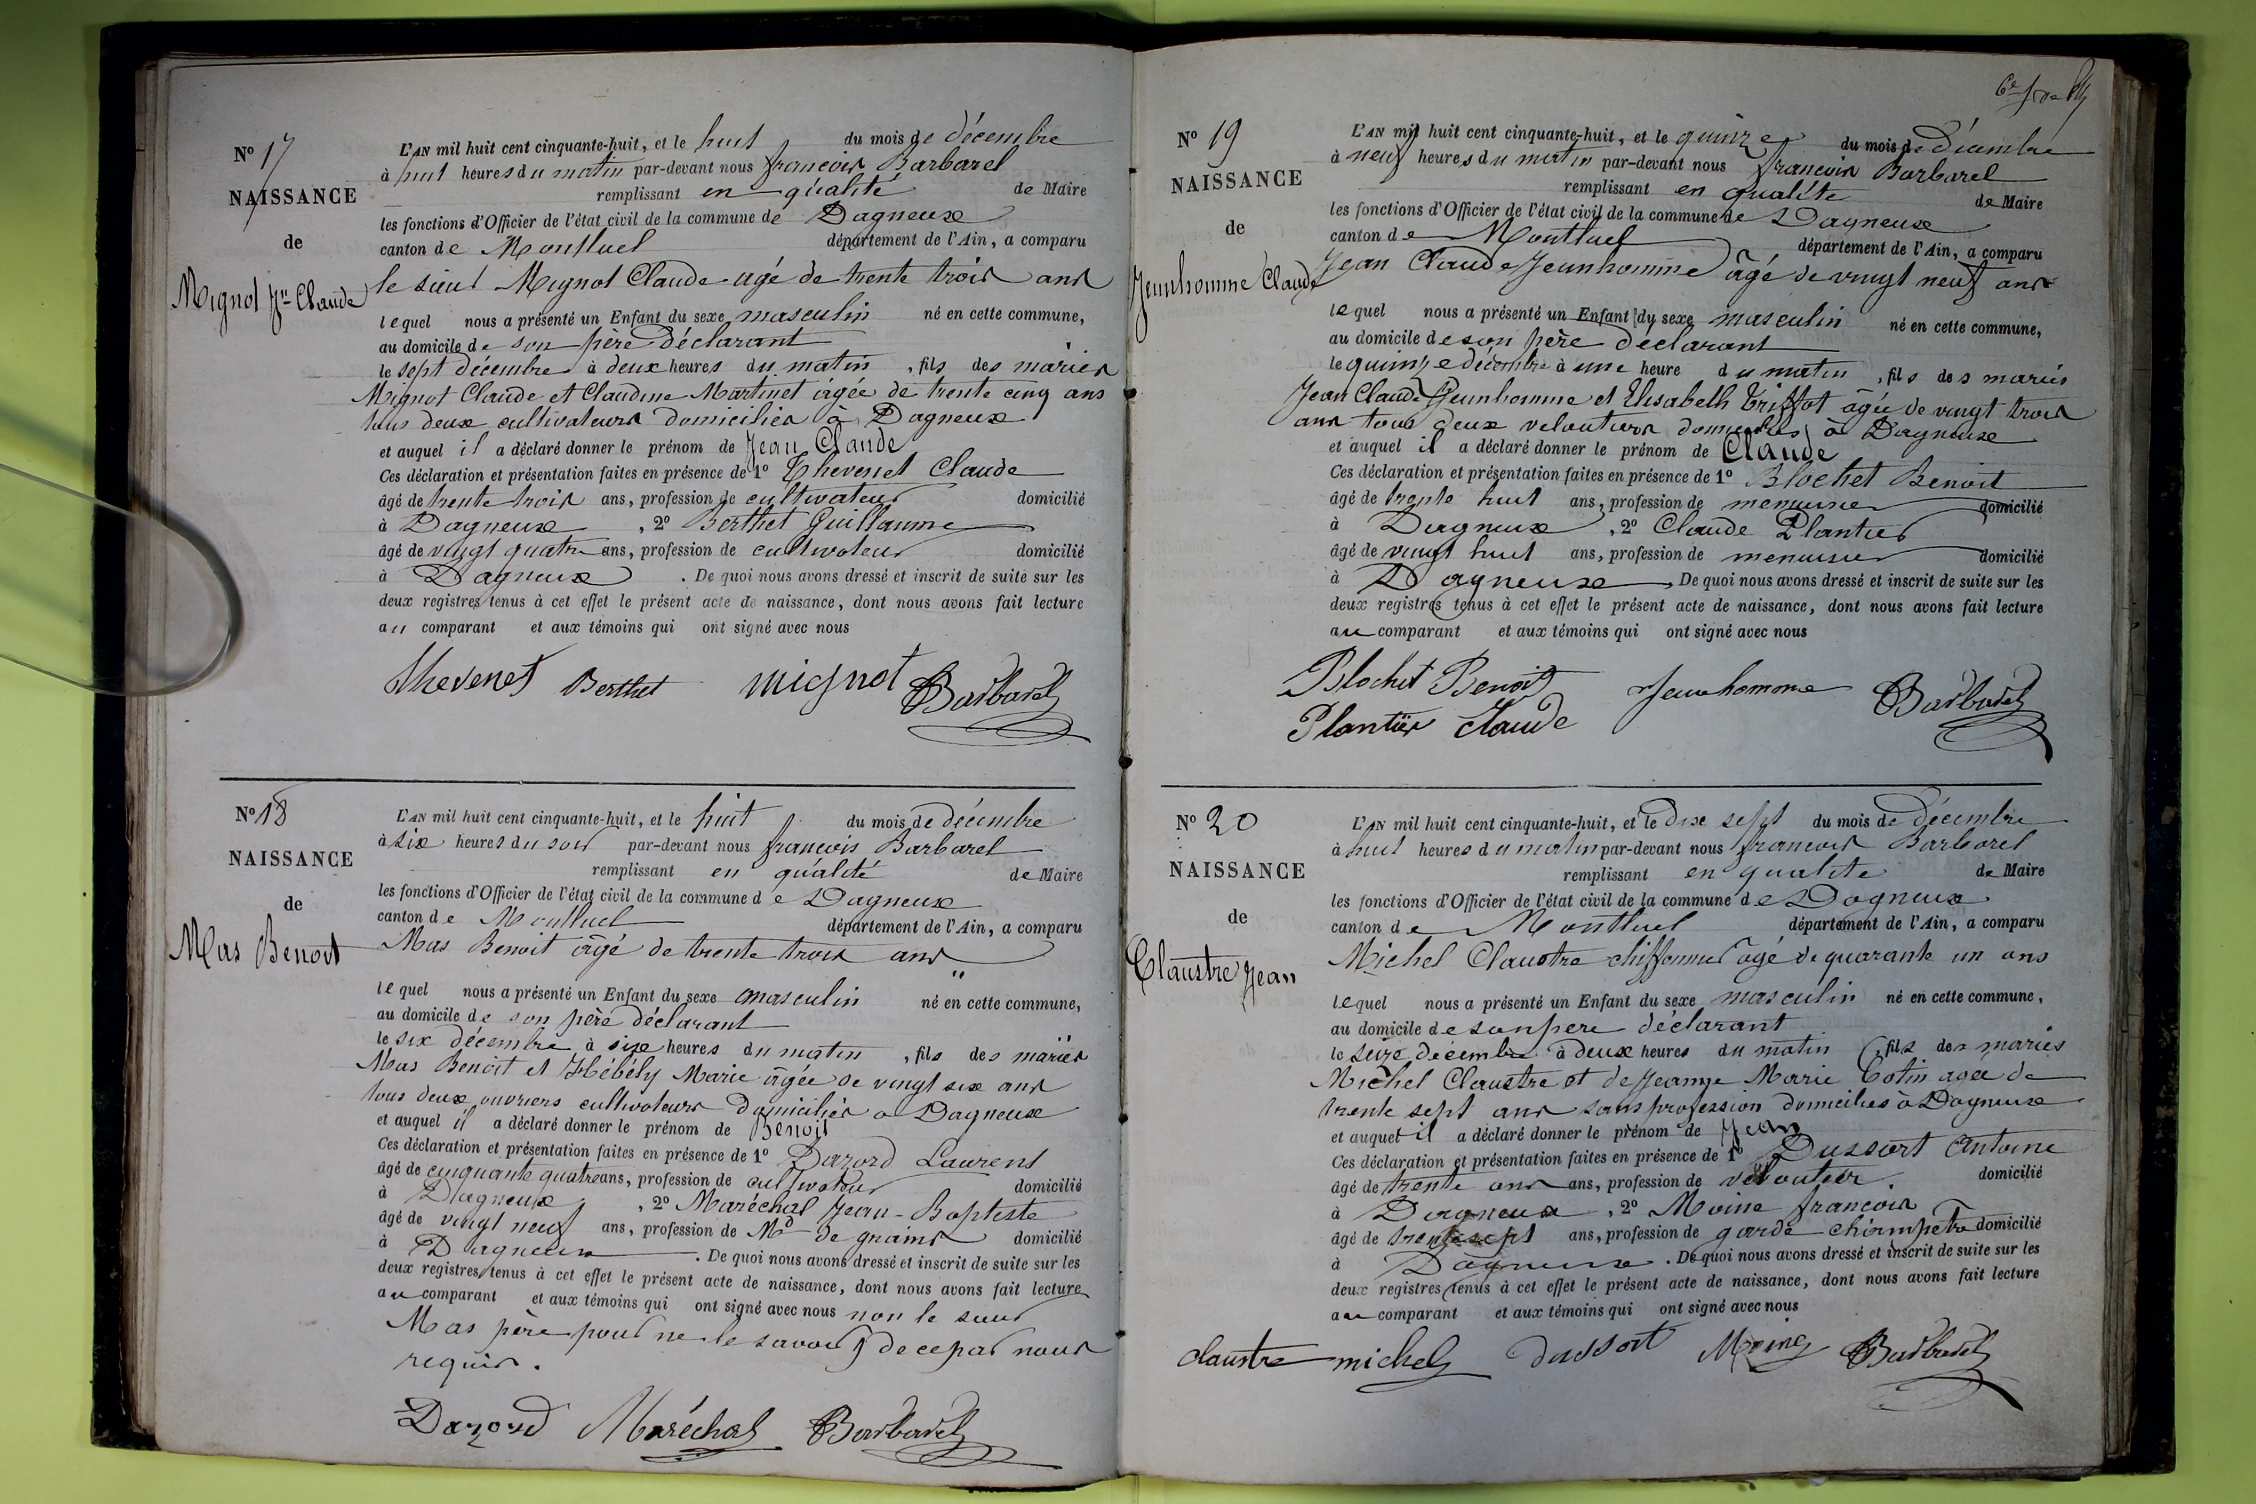 N° 17
NAISSANCE
de
Mignot Jn Claude
L'AN mil huit cent cinquante-huit, et le huit du mois de décembre
à huit heures du matin par-devant nous françois Barbarel
remplissant en qualité de Maire
les fonctions d'Officier de l'état civil de la commune de Dagneux
canton de Montluel département de l'Ain, a comparu
le sieur Mignot Claude agé de trente trois ans
lequel nous a présenté un Enfant du sexe masculin né en cette commune,
au domicile de son père déclarant
le sept décembre à deux heures du matin, fils des mariés
Mignot Claude et Claudine Martinet âgée de trente cinq ans
tous deux cultivateurs domiciliés à Dagneux
et auquel il a déclaré donner le prénom de Jean Claude
Ces déclaration et présentation faites en présence de 1° Thevenet Claude
âgé de trente trois ans, profession de cultivateur domicilié
à Dagneux, 2° Berthet Guillaume
âgé de vingt quatre ans, profession de cultivateur domicilié
à Dagneux. De quoi nous avons dressé et inscrit de suite sur les
deux registres tenus à cet effet le présent acte de naissance, dont nous avons fait lecture
au comparant et aux témoins qui ont signé avec nous
Thevenet Berthet mignot Barbarel
N° 18
NAISSANCE
de
Mas Benoit
L'AN mil huit cent cinquante-huit, et le huit du mois de décembre
à six heures du soir par-devant nous françois Barbarel
remplissant en qualité de Maire
les fonctions d'Officier de l'état civil de la commune de Dagneux
canton de Montluel département de l'Ain, a comparu
Mas Benoit âgé de trente trois ans
lequel nous a présenté un Enfant du sexe masculin né en cette commune,
au domicile de son père déclarant
le six décembre à six heures du matin, fils des mariés
Mas Benoit et Hébély Marie âgée de vingt six ans
tous deux ouvriers cultivateurs domiciliés a Dagneux
et auquel il a déclaré donner le prénom de Benoit
Ces déclaration et présentation faites en présence de 1° Darord Laurent
âgé de cinquante quatre ans, profession de cultivateur domicilié
à Dagneux, 2° Maréchal Jean-Baptiste
âgé de vingt neuf ans, profession de Md de grains domicilié
à Dagneux. De quoi nous avons dressé et inscrit de suite sur les
deux registres tenus à cet effet le présent acte de naissance, dont nous avons fait lecture
au comparant et aux témoins qui ont signé avec nous non le sieur
Mas père pour ne le savoir de ce par nous
requis.
Maréchal Barbarel
N° 19
NAISSANCE
de
Jeunhomme Claude
L'AN mil huit cent cinquante-huit, et le quinze du mois de décembre
à neuf heures du matin par-devant nous françois Barbarel
remplissant en qualité de Maire
les fonctions d'Officier de l'état civil de la commune de Dagneux
canton de Montluel département de l'Ain, a comparu
Jean Claude Jeunhomme âgé de vingt neuf ans
lequel nous a présenté un Enfant du sexe masculin né en cette commune,
au domicile de son père déclarant
le quinze décembre à une heure du matin, fils des mariés
Jean Claude Jeunhomme et Elisabeth Triffot âgée de vingt trois
ans tous deux veloutiers domiciliés à Dagneux
et auquel il a déclaré donner le prénom de Claude
Ces déclaration et présentation faites en présence de 1° Blochet Benoit
âgé de trente huit ans, profession de menuisier domicilié
à Dagneux, 2° Claude Plantier
âgé de vingt huit ans, profession de menuisier domicilié
à Dagneux. De quoi nous avons dressé et inscrit de suite sur les
deux registres tenus à cet effet le présent acte de naissance, dont nous avons fait lecture
au comparant et aux témoins qui ont signé avec nous
Blochet Benoit Jeunhomme Barbarel
Plantier Claude
N° 20
NAISSANCE
de
Claustre Jean
L'AN mil huit cent cinquante-huit, et le dix sept du mois de décembre
à huit heures du matin par-devant nous françois Barbarel
remplissant en qualité de Maire
les fonctions d'Officier de l'état civil de la commune de Dagneux
canton de Montluel département de l'Ain, a comparu
Michel Claustre chiffonnier âgé de quarante un ans
lequel nous a présenté un Enfant du sexe masculin né en cette commune,
au domicile de son père déclarant
le seize décembre à deux heures du matin, fils des mariés
Michel Claustre et de Jeanne Marie Cotin agée de
trente sept ans sans profession domiciliés à Dagneux
et auquel il a déclaré donner le prénom de Jean
Ces déclaration et présentation faites en présence de 1° Dussort Antoine
âgé de trente ans ans, profession de veloutier domicilié
à Dagneux, 2° Moine françois
âgé de trente sept ans, profession de garde champêtre domicilié
à Dagneux. De quoi nous avons dressé et inscrit de suite sur les
deux registres tenus à cet effet le présent acte de naissance, dont nous avons fait lecture
au comparant et aux témoins qui ont signé avec nous
claustre michel dussort Moine Barbarel